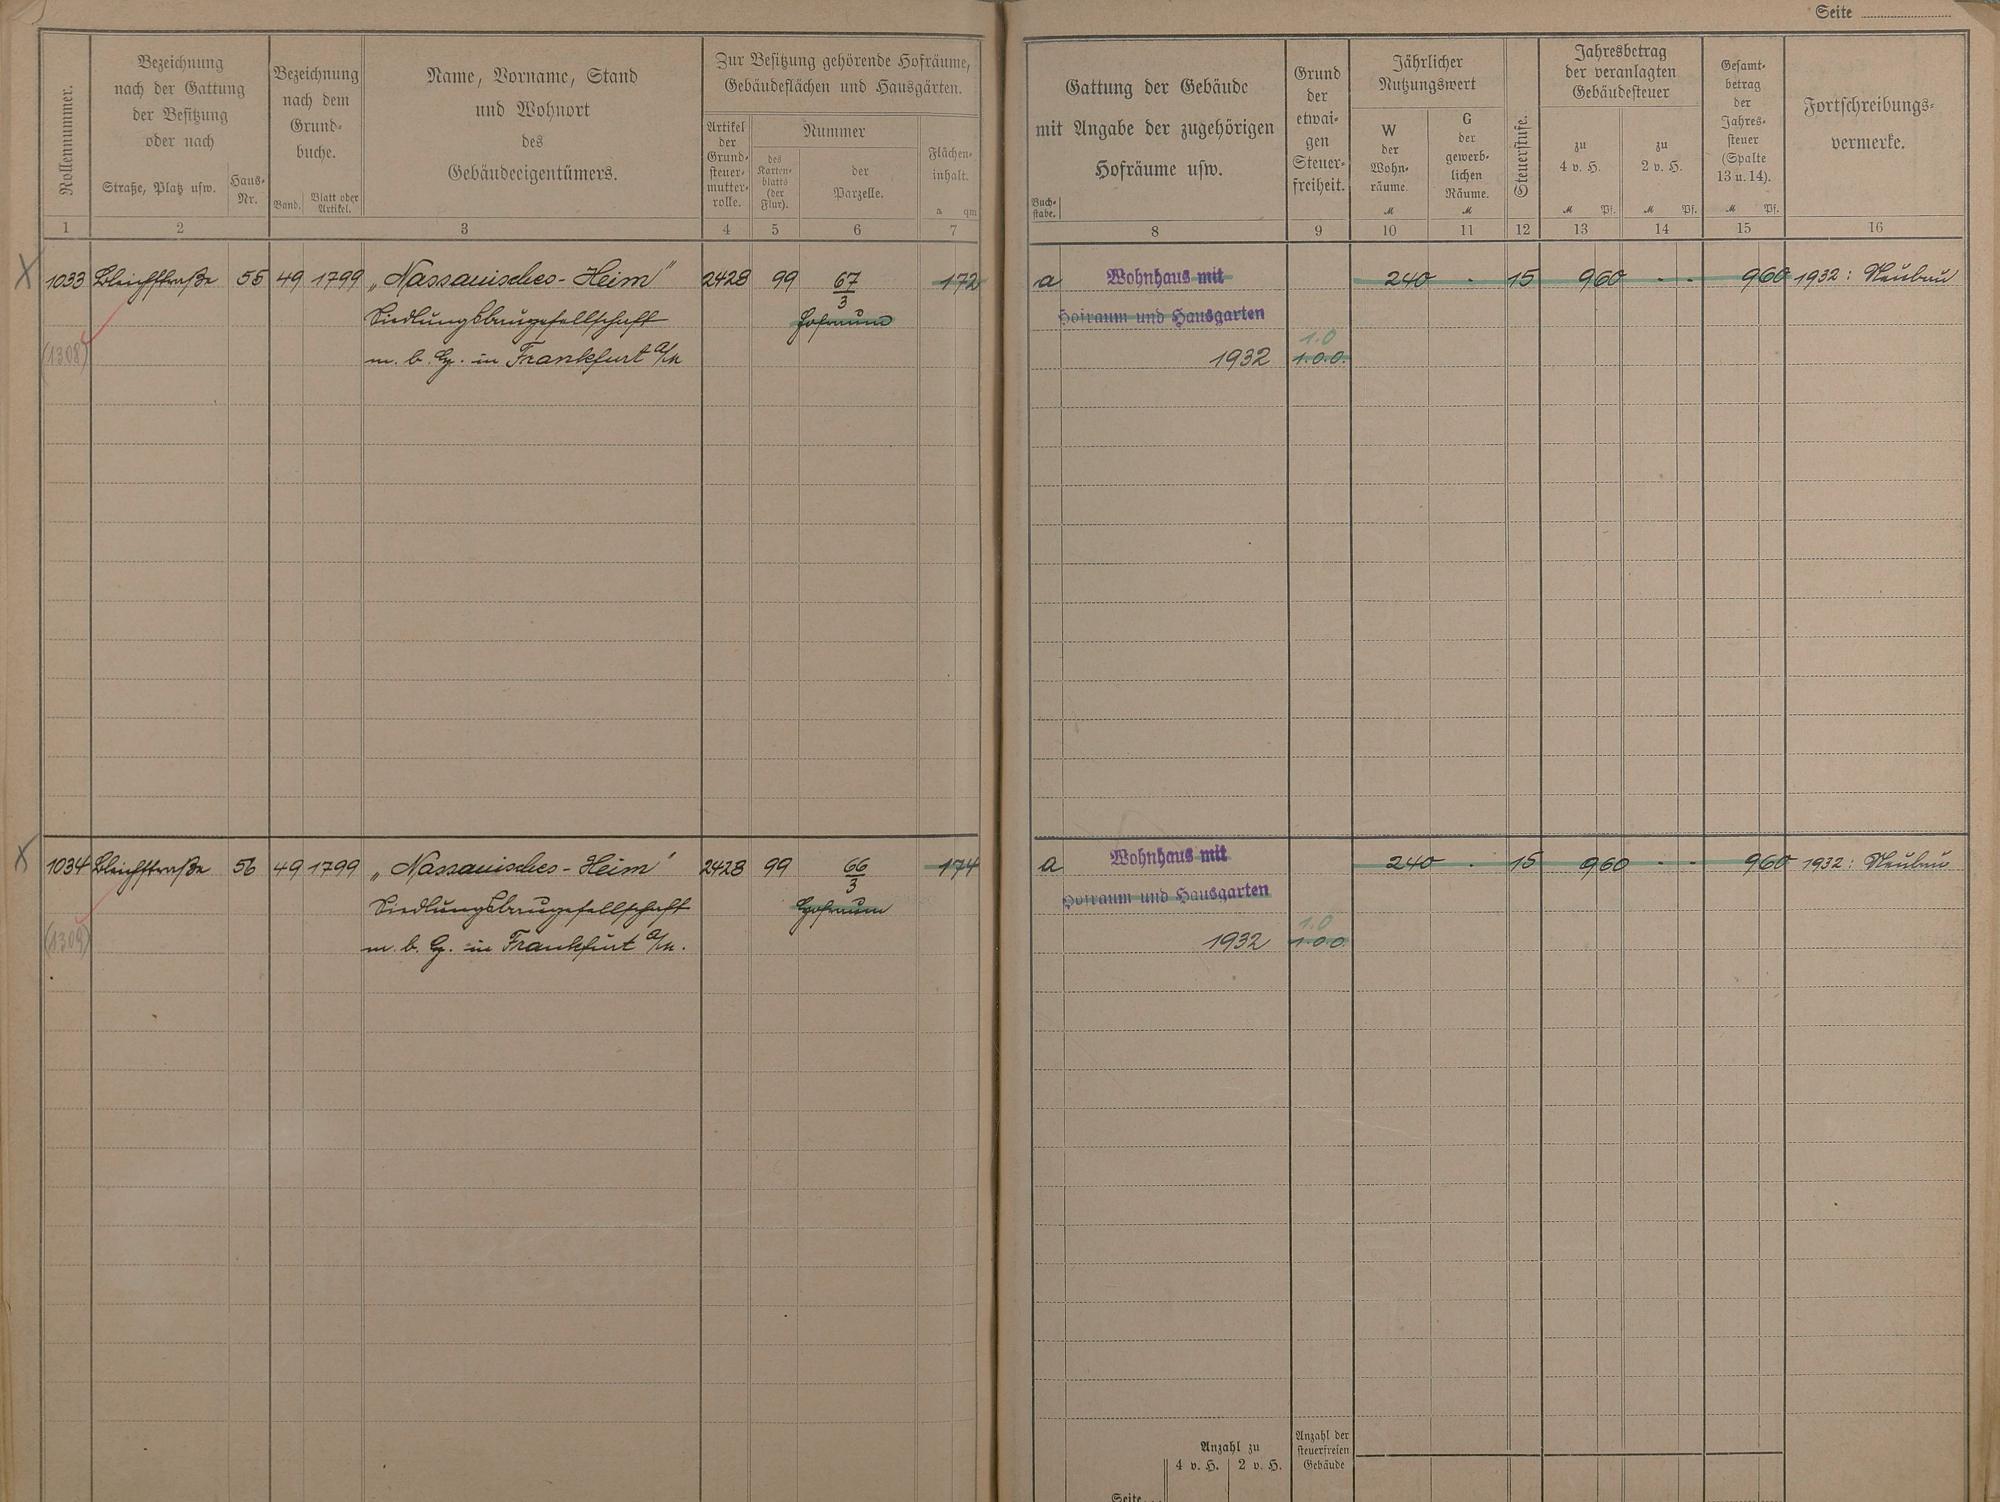 Seite
Rollennummer.
Bezeichnung
nach der Gattung
der Besitzung
oder nach
Straße, Platz usw.
Haus-
Nr.
Bezeichnung
nach dem
Grund-
buche.
Band.
Blatt oder
Artikel.
Name, Vorname, Stand
und Wohnort
des
Gebäudeeigentümers.
Zur Besitzung gehörende Hofräume,
Gebäudeflächen und Hausgärten.
Artikel
der
Grund-
steuer-
mutter-
rolle.
Nummer
des
Karten-
blatts
(der
Flur).
der
Parzelle.
Flächen-
inhalt.
a qm
Gattung der Gebäude
mit Angabe der zugehörigen
Hofräume usw.
Buch-
stabe.
Grund
der
etwai-
gen
Steuer-
freiheit.
Jährlicher
Nutzungswert
W
der
Wohn-
räume.
M
G
der
gewerb-
lichen
Räume.
M
Steuerstufe.
Jahresbetrag
der veranlagten
Gebäudesteuer
zu
4 v. H.
M Pf.
zu
2 v. H.
M Pf.
Gesamt-
betrag
der
Jahres-
steuer
(Spalte
13 u. 14).
M Pf.
Fortschreibungs-
vermerke.
1 2 3 4 5 6 7 8 9 10 11 12 13 14 15 16
X 1033 Bleichstraße 55 49 1799 „Nassauisches-Heim" 2428 99 67/3 172 a Wohnhaus mit 240 - 15 960 - - 960 1932: Neubau
Siedlungsbaugesellschaft Hofraum Hofraum und Hausgarten
1.0
(1308) m. b. H. in Frankfurt a/M 1932 1.0.0.
X 1034 Bleichstraße 56 49 1799 „Nassauisches-Heim" 2428 99 66/3 174 a Wohnhaus mit 240 - 15 960 - - 960 1932: Neubau
Siedlungsbaugesellschaft Hofraum Hofraum und Hausgarten
1.0
(1309) m. b. H. in Frankfurt a/M. 1932 1.0.0.
Anzahl zu
4 v. H. 2 v. H.
Anzahl der
steuerfreien
Gebäude
Seite